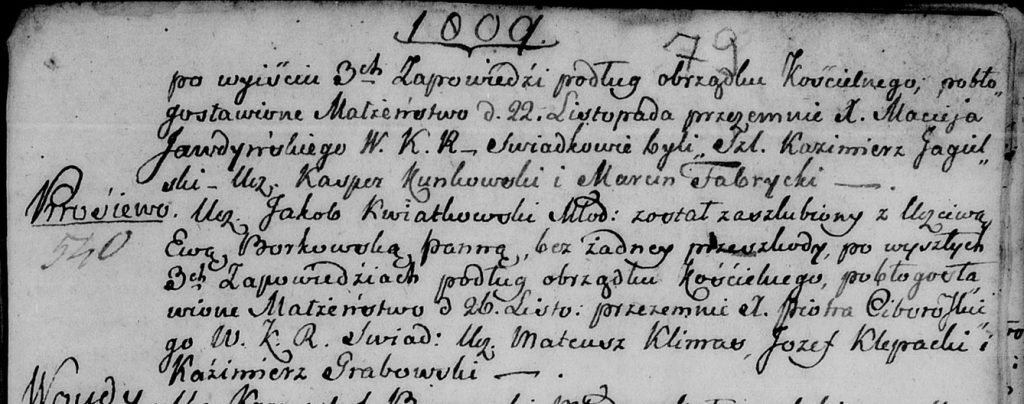 1809.
79
po wyiściu 3ch Zapowiedźi podług obrządku Kościelnego, pobło„
gosławione Małżeństwo d. 22. Listopada przezemnie X. Macieja
Jawdyńskiego W. K. R— Swiadkowie byli„ Szl. Kazimierz Jagiel„
ski— Ucz. Kasper Kunkowski i Marcin Fabrycki —.
Ucz. Jakob Kwiatkowski Młod: został zaszlubiony z Uczciwą
540
Ewą Borkowską, panną, bez żadney przeszkody, po wyszłych
3ch Zapowiedziach podług obrządku Kościelnego, pobłogosła
wione Małżeństwo d 26. Listo: przezemnie X. Piotra
go W. K. R. Swiad: Ucz. Mateusz Klimas, Jozef Klepacki i
Kaźimierz Grabowski —.